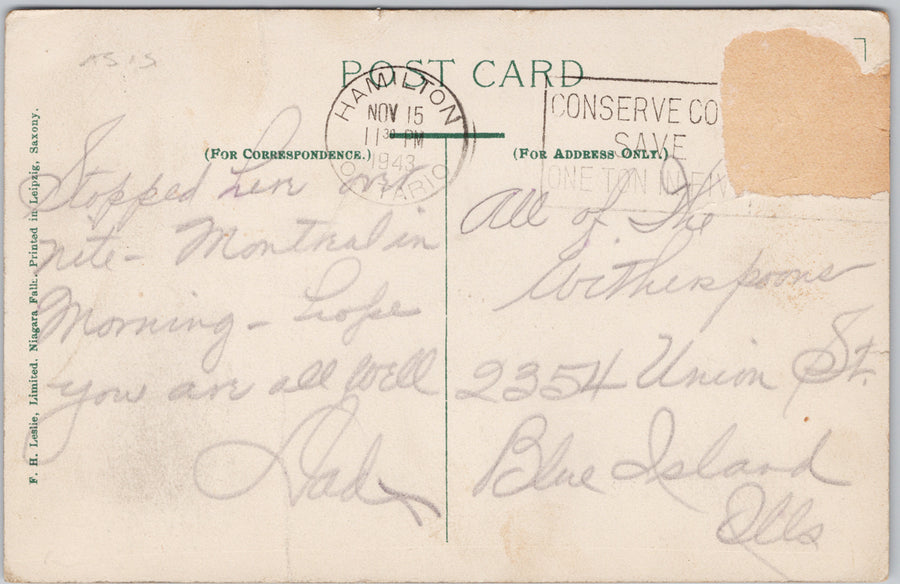 AS IS
POST CARD
HAMILTON
NOV 15
11 30 PM
1943
ONTARIO
CONSERVE CO
SAVE
ONE TON IN FIV
(FOR CORRESPONDENCE.)
(FOR ADDRESS ONLY.)
Stopped here over
nite - Montreal in
Morning - hope
you are all well
Dad
All of The
Witherspoons
2354 Union St.
Blue Island
Ills
F. H. Leslie, Limited, Niagara Falls. Printed in Leipzig, Saxony.